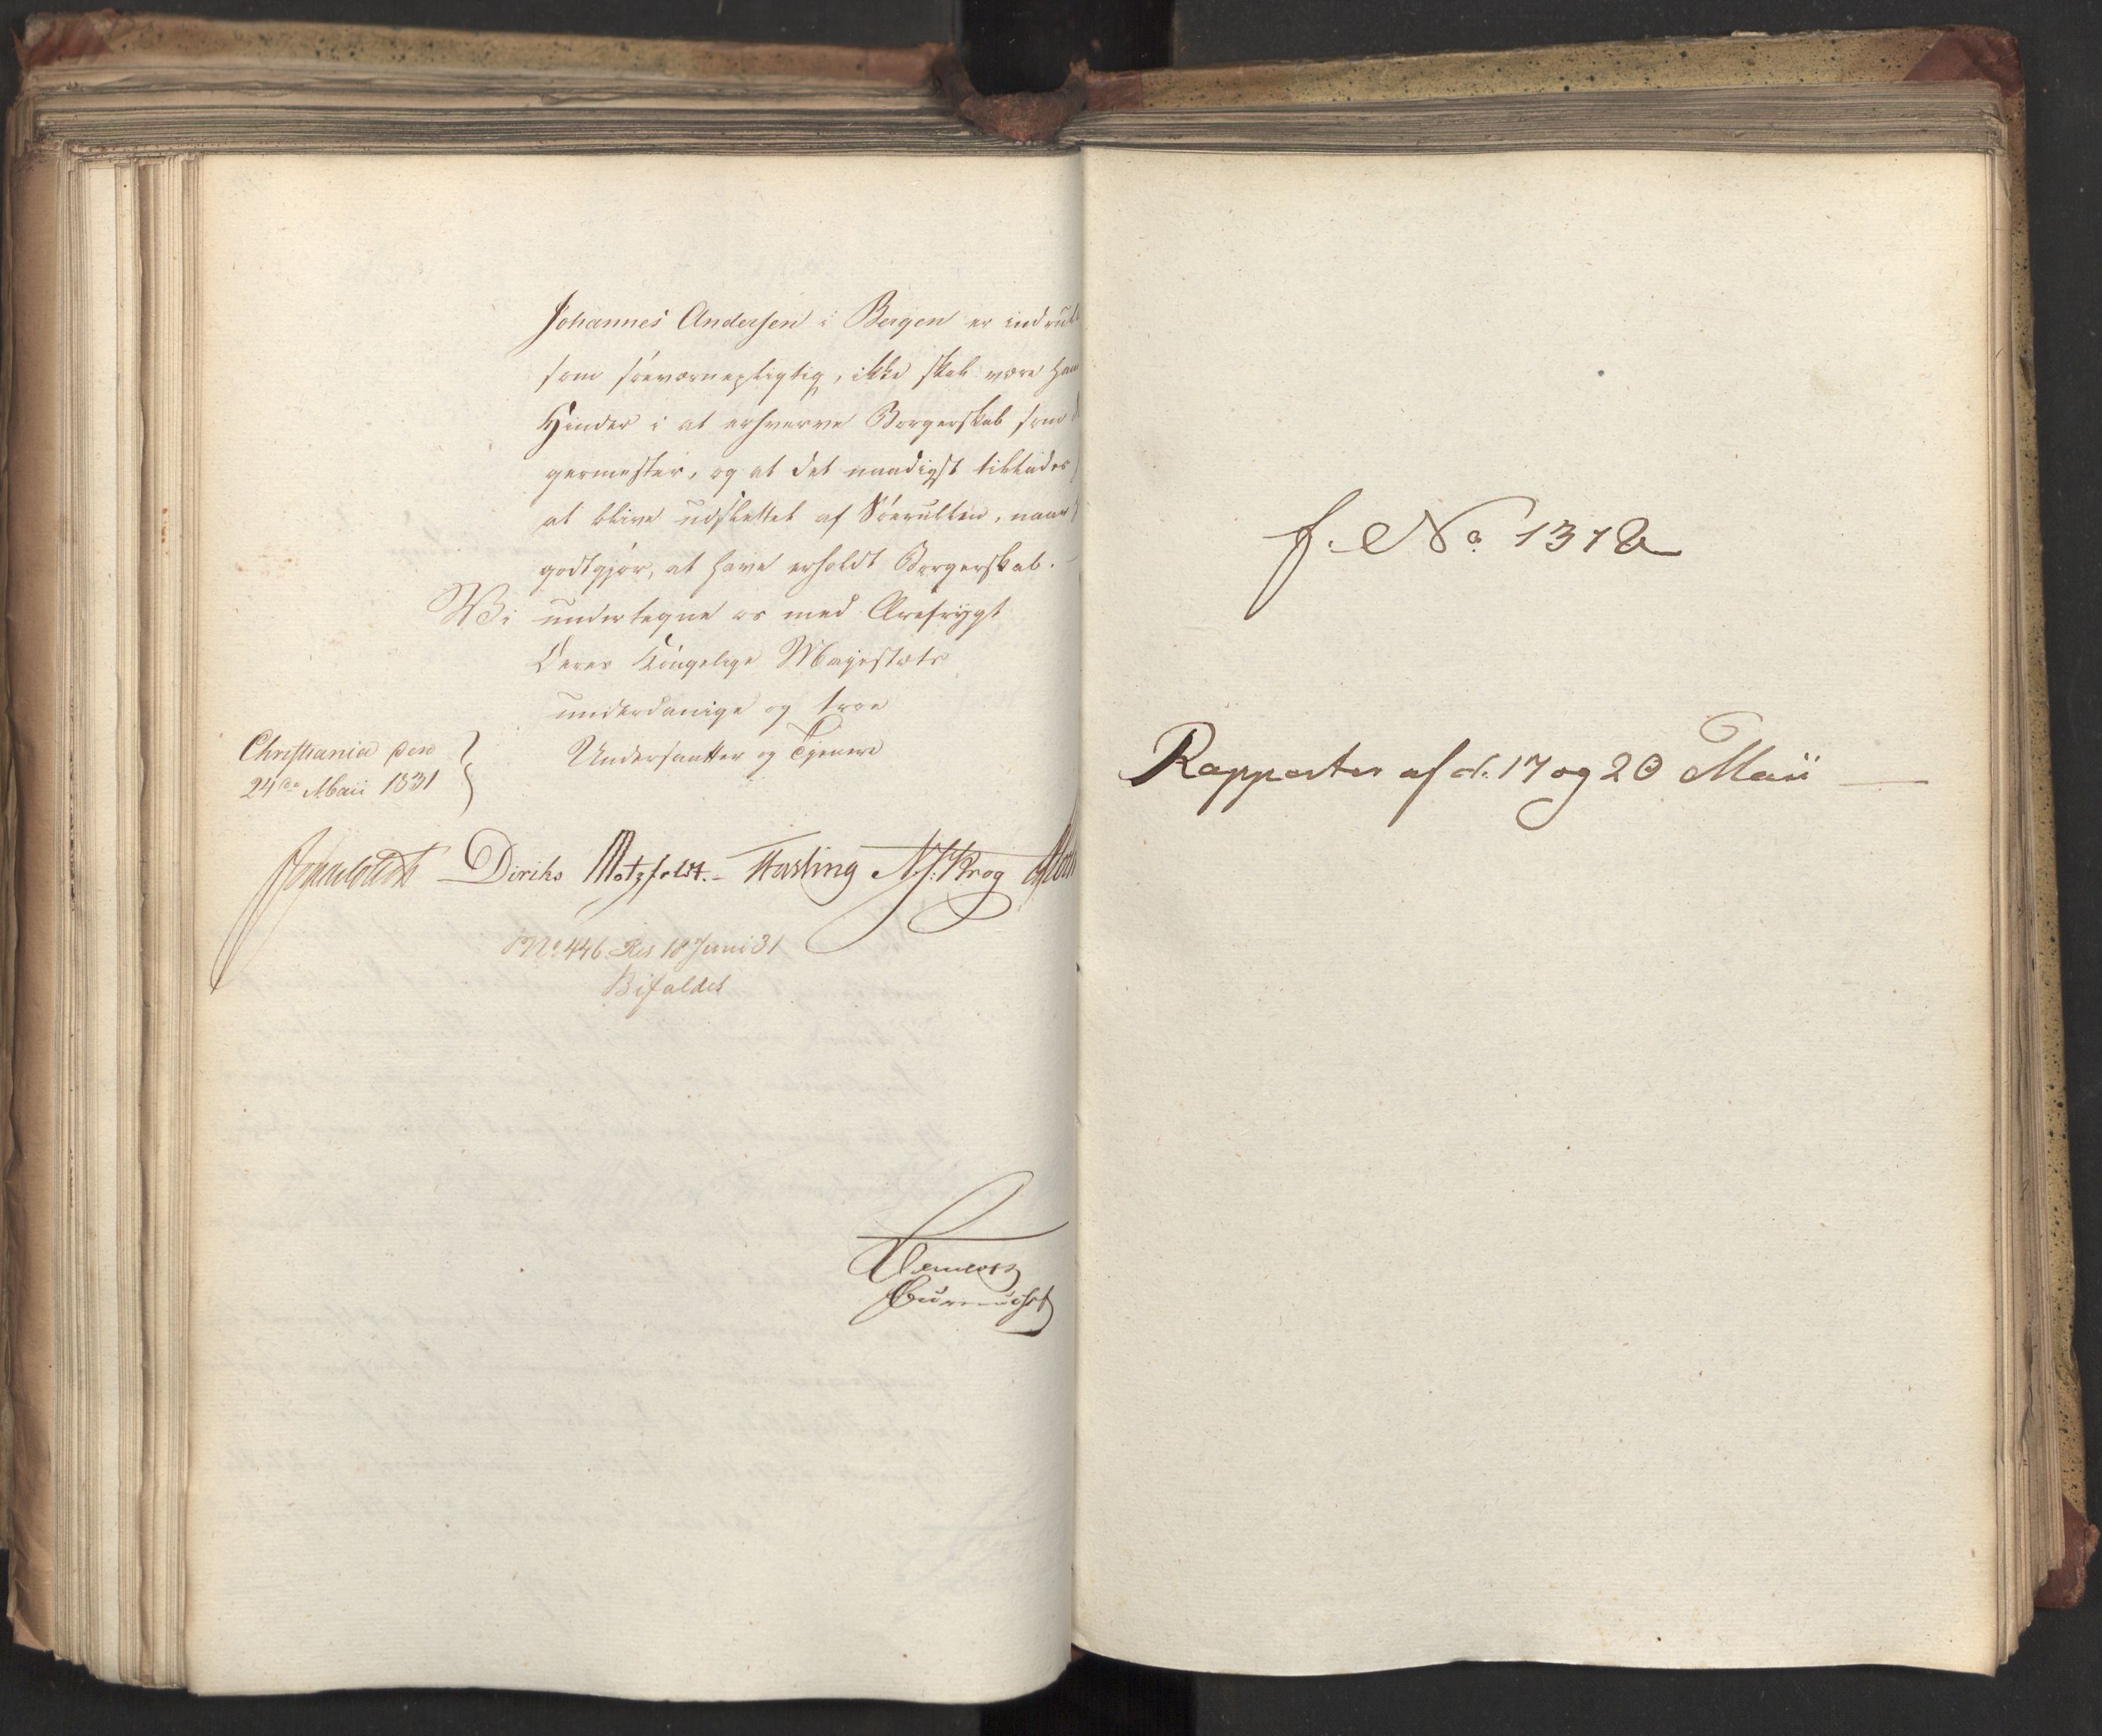 Johannes Andersen i Bergen er indrull
som søeværnepligtig, ikke skal være ham
Hinder i at erhverve Borgerskab som
germester, og at det naadigst tillades
at blive udslettet af Søerullen, naar
godtgjør, at have erholdt Borgerskab.
Vi undertegne os med Ærefrygt
Deres Kongelige Majestæts
underdanige og troe
Undersaatter og Tjenere
Christiania den
24de Maii 1831
Diriks Motzfeldt. Hasling N. J. Krog
No 446. Res 18 Juni 31
Bifaldes
f. No 131
Rapporter af d. 17 og 20 Maii